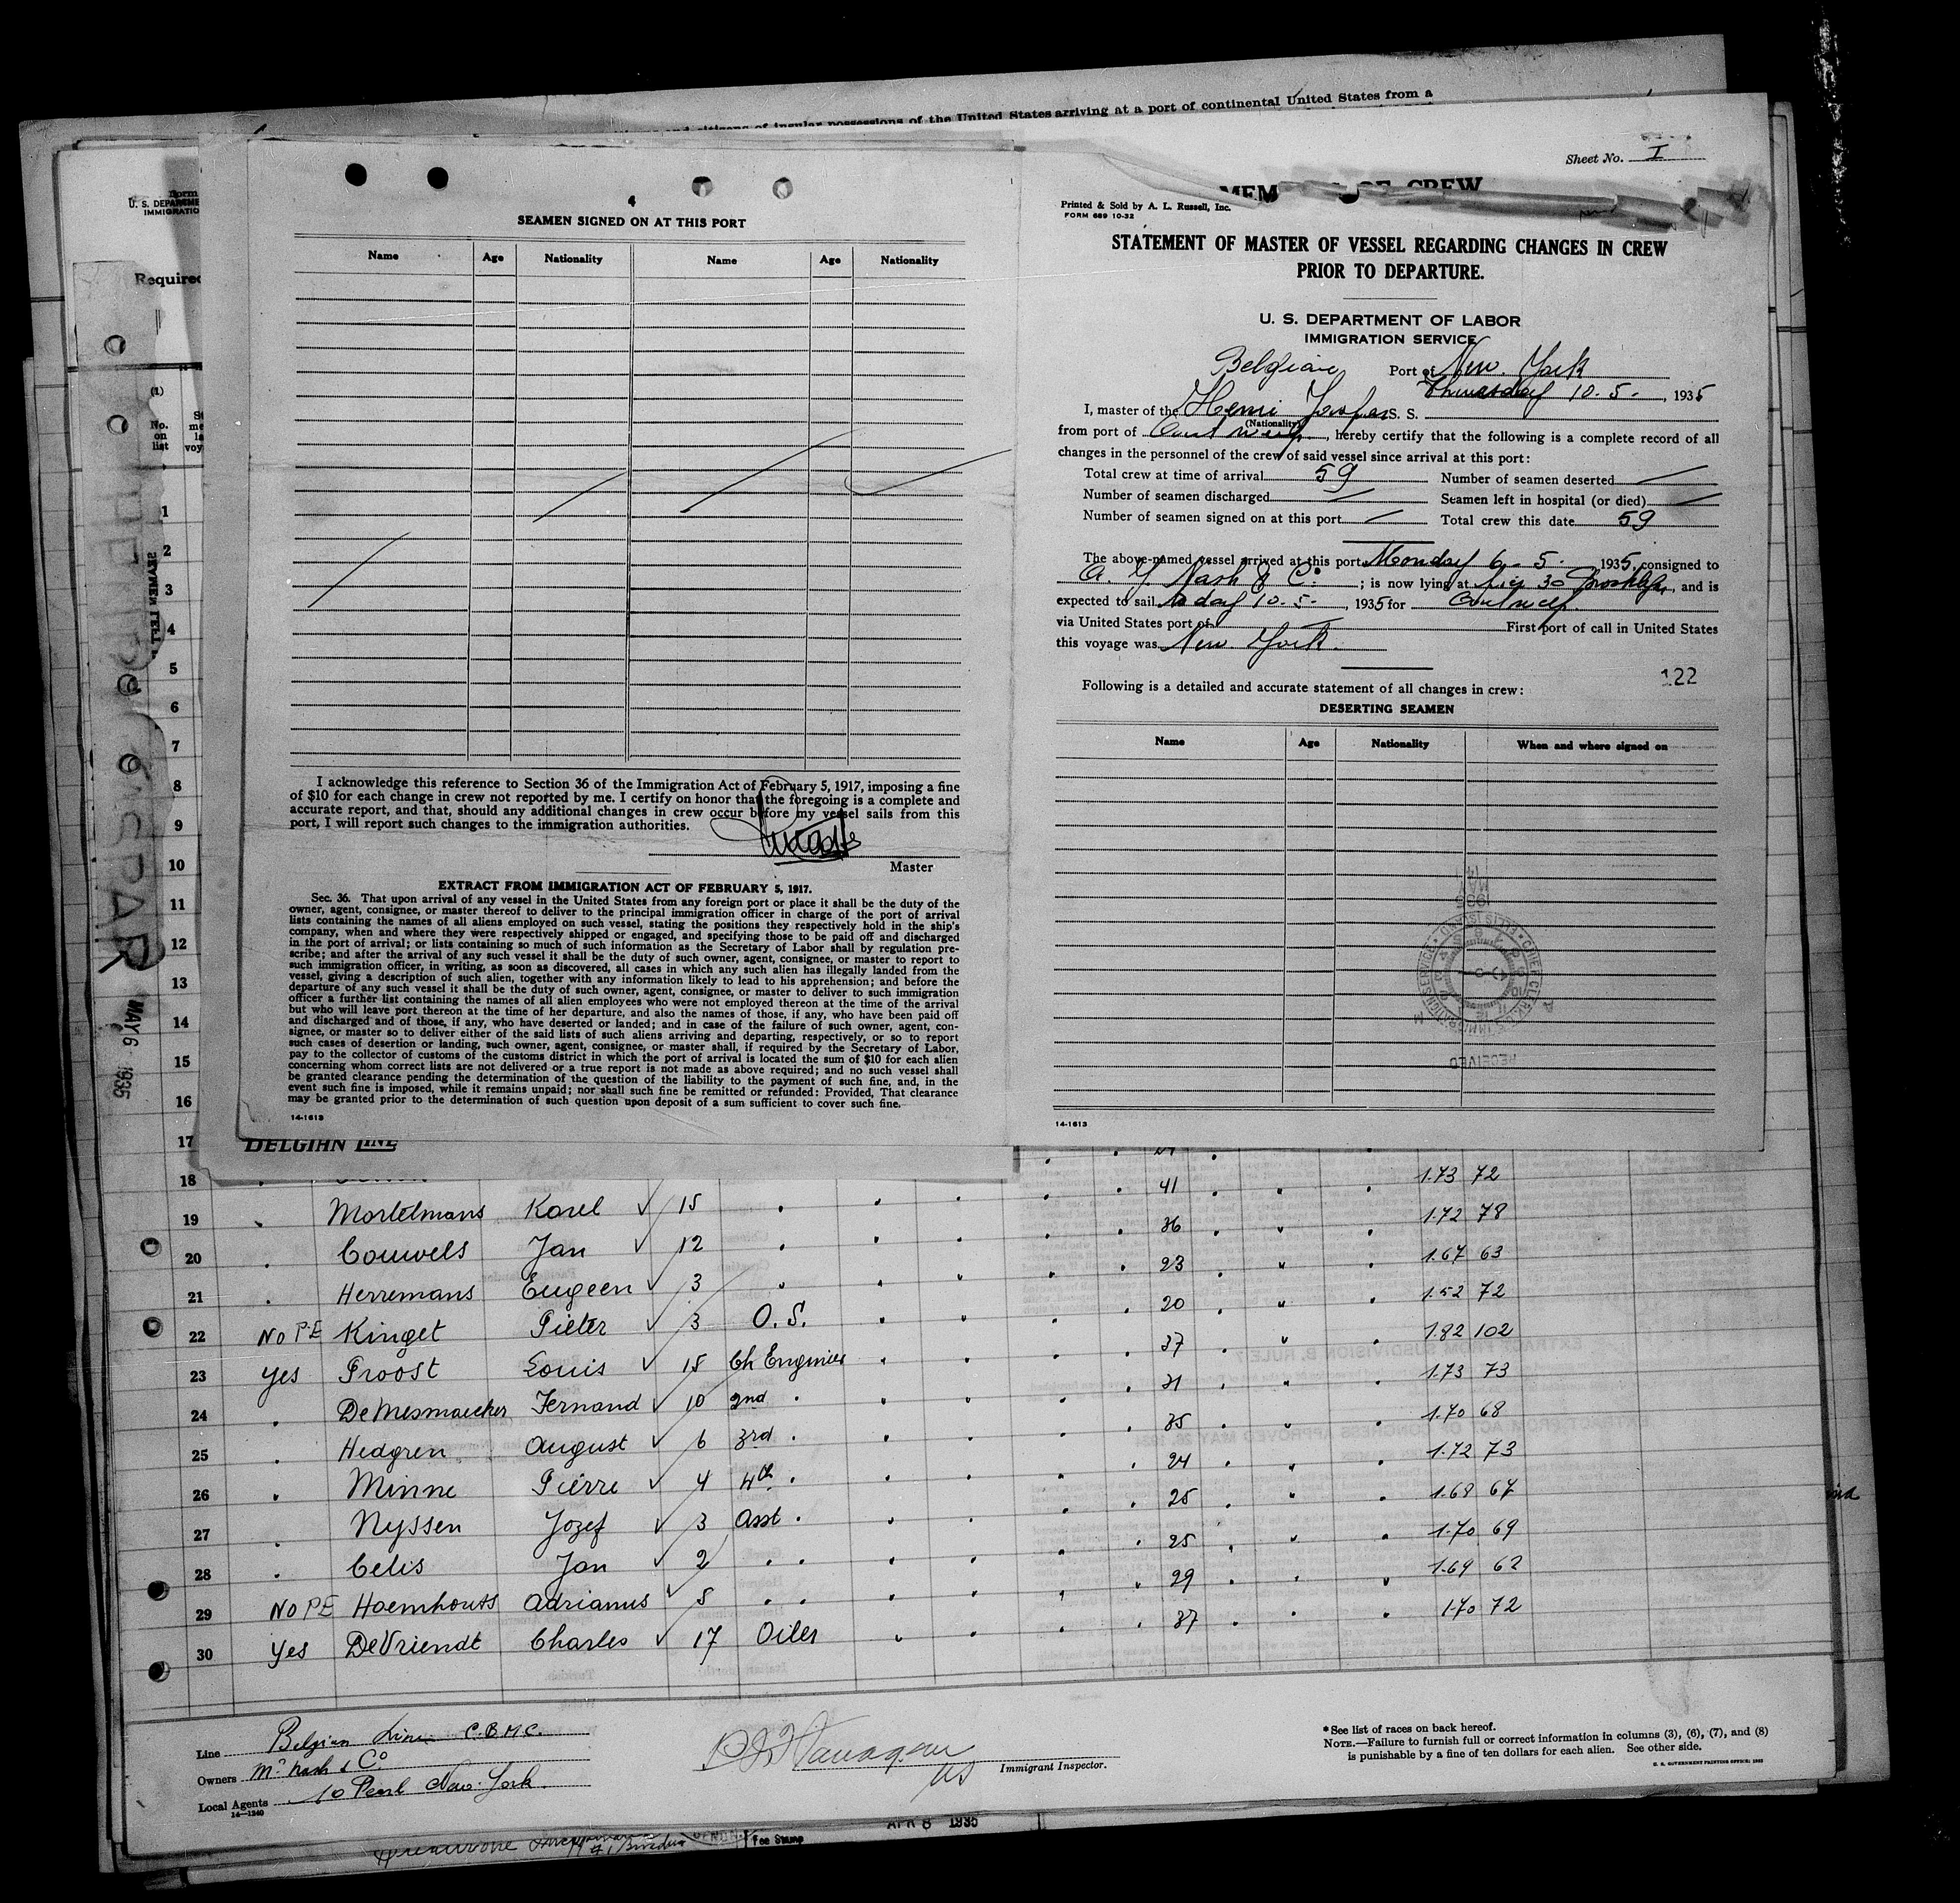 and citizens of insular possessions of the United States arriving at a port of continental United States from a
Form
U. S. DEPARTME
IMMIGRATIO
Required
(1)
No.
on
list
4
SEAMEN SIGNED ON AT THIS PORT
Name Age Nationality Name Age Nationality
I acknowledge this reference to Section 36 of the Immigration Act of February 5, 1917, imposing a fine
of $10 for each change in crew not reported by me. I certify on honor that the foregoing is a complete and
accurate report, and that, should any additional changes in crew occur before my vessel sails from this
port, I will report such changes to the immigration authorities.
Master
EXTRACT FROM IMMIGRATION ACT OF FEBRUARY 5, 1917.
Sec. 36. That upon arrival of any vessel in the United States from any foreign port or place it shall be the duty of the
owner, agent, consignee, or master thereof to deliver to the principal immigration officer in charge of the port of arrival
lists containing the names of all aliens employed on such vessel, stating the positions they respectively hold in the ship's
company, when and where they were respectively shipped or engaged, and specifying those to be paid off and discharged
in the port of arrival; or lists containing so much of such information as the Secretary of Labor shall by regulation pre-
scribe; and after the arrival of any such vessel it shall be the duty of such owner, agent, consignee, or master to report to
such immigration officer, in writing, as soon as discovered, all cases in which any such alien has illegally landed from the
vessel, giving a description of such alien, together with any information likely to lead to his apprehension; and before the
departure of any such vessel it shall be the duty of such owner, agent, consignee, or master to deliver to such immigration
officer a further list containing the names of all alien employees who were not employed thereon at the time of the arrival
but who will leave port thereon at the time of her departure, and also the names of those, if any, who have been paid off
and discharged and of those, if any, who have deserted or landed; and in case of the failure of such owner, agent, con-
signee, or master so to deliver either of the said lists of such aliens arriving and departing, respectively, or so to report
such cases of desertion or landing, such owner, agent, consignee, or master shall, if required by the Secretary of Labor,
pay to the collector of customs of the customs district in which the port of arrival is located the sum of $10 for each alien
concerning whom correct lists are not delivered or a true report is not made as above required; and no such vessel shall
be granted clearance pending the determination of the question of the liability to the payment of such fine, and, in the
event such fine is imposed, while it remains unpaid; nor shall such fine be remitted or refunded: Provided, That clearance
may be granted prior to the determination of such question upon deposit of a sum sufficient to cover such fine.
14-1613
BELGIAN LINE
Sheet No. I
OF CREW
Printed & Sold by A. L. Russell, Inc.
FORM 689 10-32
STATEMENT OF MASTER OF VESSEL REGARDING CHANGES IN CREW
PRIOR TO DEPARTURE.
U. S. DEPARTMENT OF LABOR
IMMIGRATION SERVICE
Belgian Port of New York
Thursday 10. 5. , 1935
I, master of the Henri Jaspar S. S.
(Nationality)
from port of Antwerp, hereby certify that the following is a complete record of all
changes in the personnel of the crew of said vessel since arrival at this port:
Total crew at time of arrival 59 Number of seamen deserted
Number of seamen discharged Seamen left in hospital (or died)
Number of seamen signed on at this port Total crew this date 59
The above-named vessel arrived at this port Monday 6 - 5. 1935, consigned to
A. G. Nash & Co ; is now lying at pier 30 Brooklyn, and is
expected to sail to day 10. 5. , 1935 for Antwerp.
via United States port of First port of call in United States
this voyage was New York.
122
Following is a detailed and accurate statement of all changes in crew:
DESERTING SEAMEN
Name Age Nationality When and where signed on
1935
MAY
14
RECEIVED
14-1613
JASPAR
MAY 6 1935
1
2
3
4
5
6
7
8
9
10
11
12
13
14
15
16
17
18 41 1.73 72
19 Mortelmans Karel 15 36 1.72 78
20 Couwels Jan 12 23 1.67 63
21 Herremans Eugeen 3 20 1.52 72
22 No PE Kinget Pieter 3 O.S. 37 1.82 102
23 Yes Proost Louis 15 Ch Engineer 31 1.73 73
24 DeMesmaecker Fernand 10 2nd 35 1.70 68
25 Hedgren August 6 3rd 24 1.72 73
26 Minne Pierre 4 4th 25 1.68 67
27 Nyssen Jozef 3 Asst 25 1.70 69
28 Celis Jan 2 29 1.69 62
29 No PE Haemhouts Adrianus 8 37 1.70 72
30 Yes DeVriendt Charles 17 Oiler
Line Belgian Line C.B.M.C.
Owners Mr. Nash & Co
Local Agents 10 Pearl New-York.
14—1240
Immigrant Inspector.
*See list of races on back hereof.
NOTE.—Failure to furnish full or correct information in columns (3), (6), (7), and (8)
is punishable by a fine of ten dollars for each alien. See other side.
U. S. GOVERNMENT PRINTING OFFICE: 1932
APR 8 1935
Fee Stamp